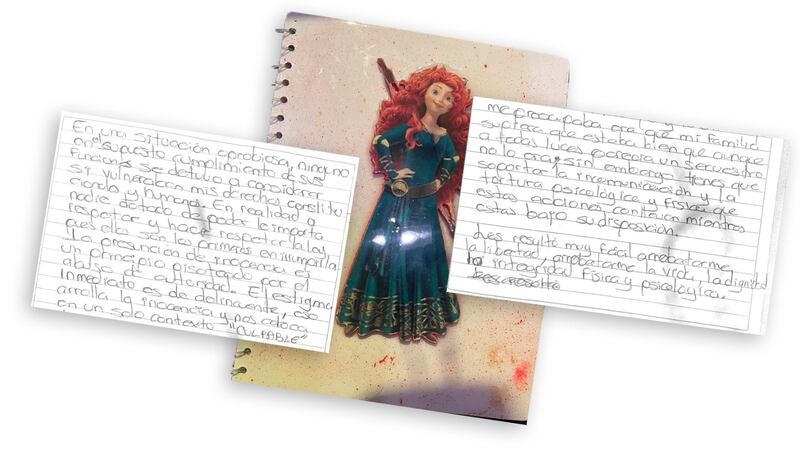 En una situación oprobiosa, ninguno
en supuesto cumplimiento de sus
funciones se detuvo a considerar
si vulneraban mis derechos constitu-
y humanos. En realidad a
nadie dotado de poder le importa
respetar y hacer respetar la ley
pues ellos son los primeros en incumplirla
La presunción de inocencia es
un principio pisoteado por el
abuso de autoridad. El estigma
inmediato es de delincuente, eso
arrolla la inocencia y nos coloca
en un solo contexto "CULPABLE"
me preocupaba era que mi familia
supiera que estaba bien que aunque
a todas luces parecia un secuestro
no lo era, sin embargo tienes que
soportar la incomunicación y a
tortura psicológica y física que
estas acciones conllevan mientras
estas bajo su disposición.
Les resultó muy fácil arrebatarme
la libertad, arrebatarme la vida, la dignidad
la integridad física y psicológica.